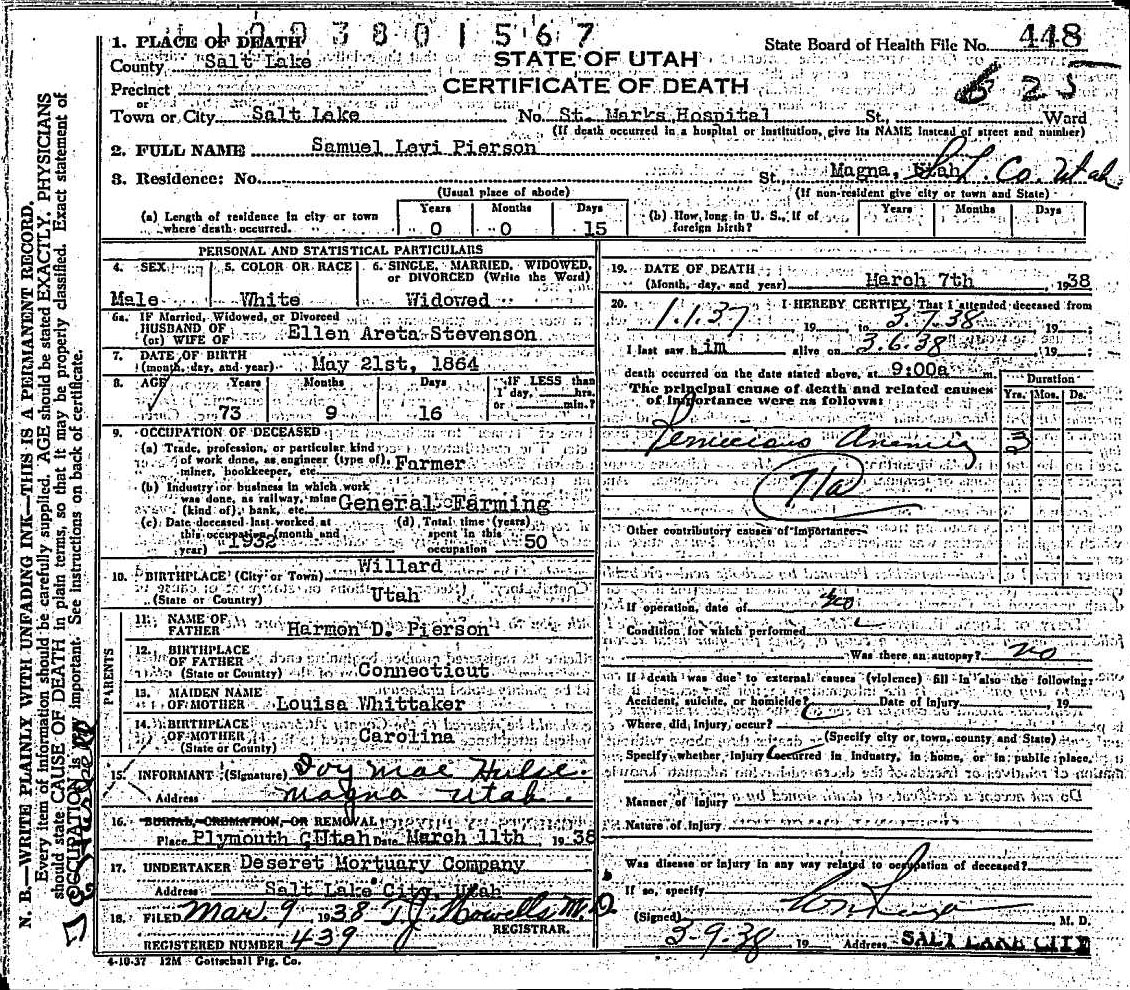 1003801567
State Board of Health File No. 448
1. PLACE OF DEATH
County Salt Lake
STATE OF UTAH
Precinct
CERTIFICATE OF DEATH
625
or
Town or City Salt Lake No. St. Marks Hospital St., Ward
(If death occurred in a hospital or institution, give its NAME instead of street and number)
2. FULL NAME Samuel Levi Pierson
3. Residence: No. St. Magna, Utah S. L. Co. Utah
(Usual place of abode) (If non-resident give city or town and State)
(a) Length of residence in city or town where death occurred. Years 0 Months 0 Days 15
(b) How long in U. S., if of foreign birth? Years Months Days
PERSONAL AND STATISTICAL PARTICULARS
4. SEX 5. COLOR OR RACE 6. SINGLE, MARRIED, WIDOWED, or DIVORCED (Write the Word)
Male White Widowed
6a. IF Married, Widowed, or Divorced
HUSBAND OF
(or) WIFE OF Ellen Areta Stevenson
7. DATE OF BIRTH
(month, day, and year) May 21st, 1864
8. AGE Years Months Days IF LESS than
1 day, hrs.
or min.?
73 9 16
9. OCCUPATION OF DECEASED
(a) Trade, profession, or particular kind
of work done, as engineer (type of),
miner, bookkeeper, etc. Farmer
(b) Industry or business in which work
was done, as railway, mine
(kind of), bank, etc. General Farming
(c) Date deceased last worked at
this occupation (month and
year) 1932
(d) Total time (years)
spent in this
occupation 50
10. BIRTHPLACE (City or Town) Willard
(State or Country) Utah
PARENTS
11. NAME OF
FATHER Harmon D. Pierson
12. BIRTHPLACE
OF FATHER
(State or Country) Connecticut
13. MAIDEN NAME
OF MOTHER Louisa Whittaker
14. BIRTHPLACE
OF MOTHER
(State or County) Carolina
15. INFORMANT (Signature) Ivy Mae Hulse
Address Magna Utah.
16. BURIAL, CREMATION, OR REMOVAL
Place Plymouth Utah Date March 11th, 1938
17. UNDERTAKER Deseret Mortuary Company
Address Salt Lake City, Utah
18. FILED Mar. 9, 1938 T. J. Howells M. D.
REGISTRAR.
REGISTERED NUMBER 439
4-10-37 12M Gottschall Ptg. Co.
19. DATE OF DEATH
(Month, day, and year) March 7th, 1938
20. I HEREBY CERTIFY, That I attended deceased from
1.1.37 19 to 3.7.38 19 :
I last saw him alive on 3.6.38, 19 ;
death occurred on the date stated above, at 9:00a m.
The principal cause of death and related causes
of importance were as follows:
Duration
Yrs. Mos. Ds.
Pernicious Anemia 3
71a
Other contributory causes of importance—
If operation, date of no
Condition for which performed
Was there an autopsy? no
If death was due to external causes (violence) fill in also the following:
Accident, suicide, or homicide? Date of Injury, 19
Where did injury occur?
(Specify city or town, county, and State)
Specify whether Injury occurred in Industry, in home, or in public place.
Manner of injury
Nature of injury
Was disease or injury in any way related to occupation of deceased?
If so, specify
(Signed) M. D.
3-9-38 19 Address SALT LAKE CITY
N. B.—WRITE PLAINLY WITH UNFADING INK—THIS IS A PERMANENT RECORD.
Every item of information should be carefully supplied. AGE should be stated EXACTLY. PHYSICIANS
should state CAUSE OF DEATH in plain terms, so that it may be properly classified. Exact statement of
OCCUPATION is very important. See instructions on back of certificate.